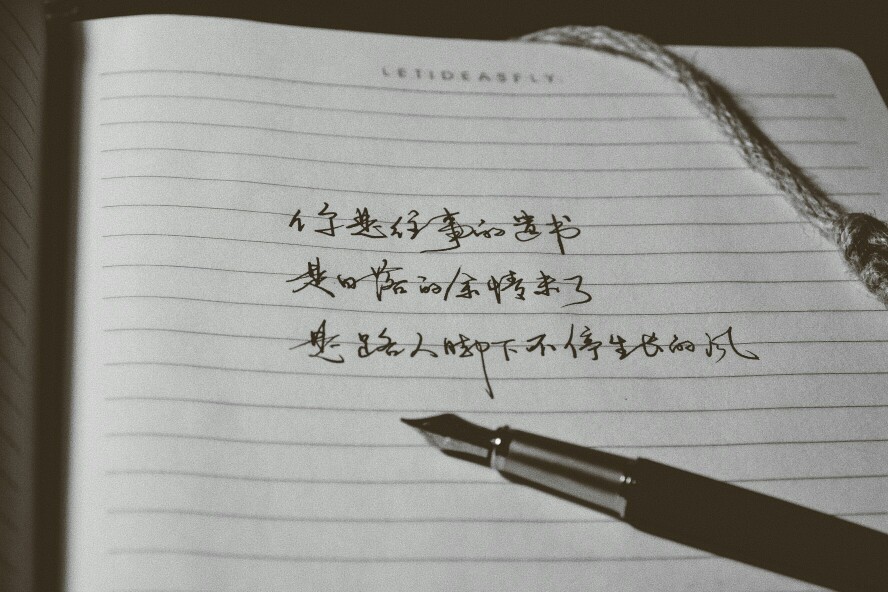 LETIDEASFLY.
你是往事的遗书
是日落的余情未了
是路人脚下不停生长的风